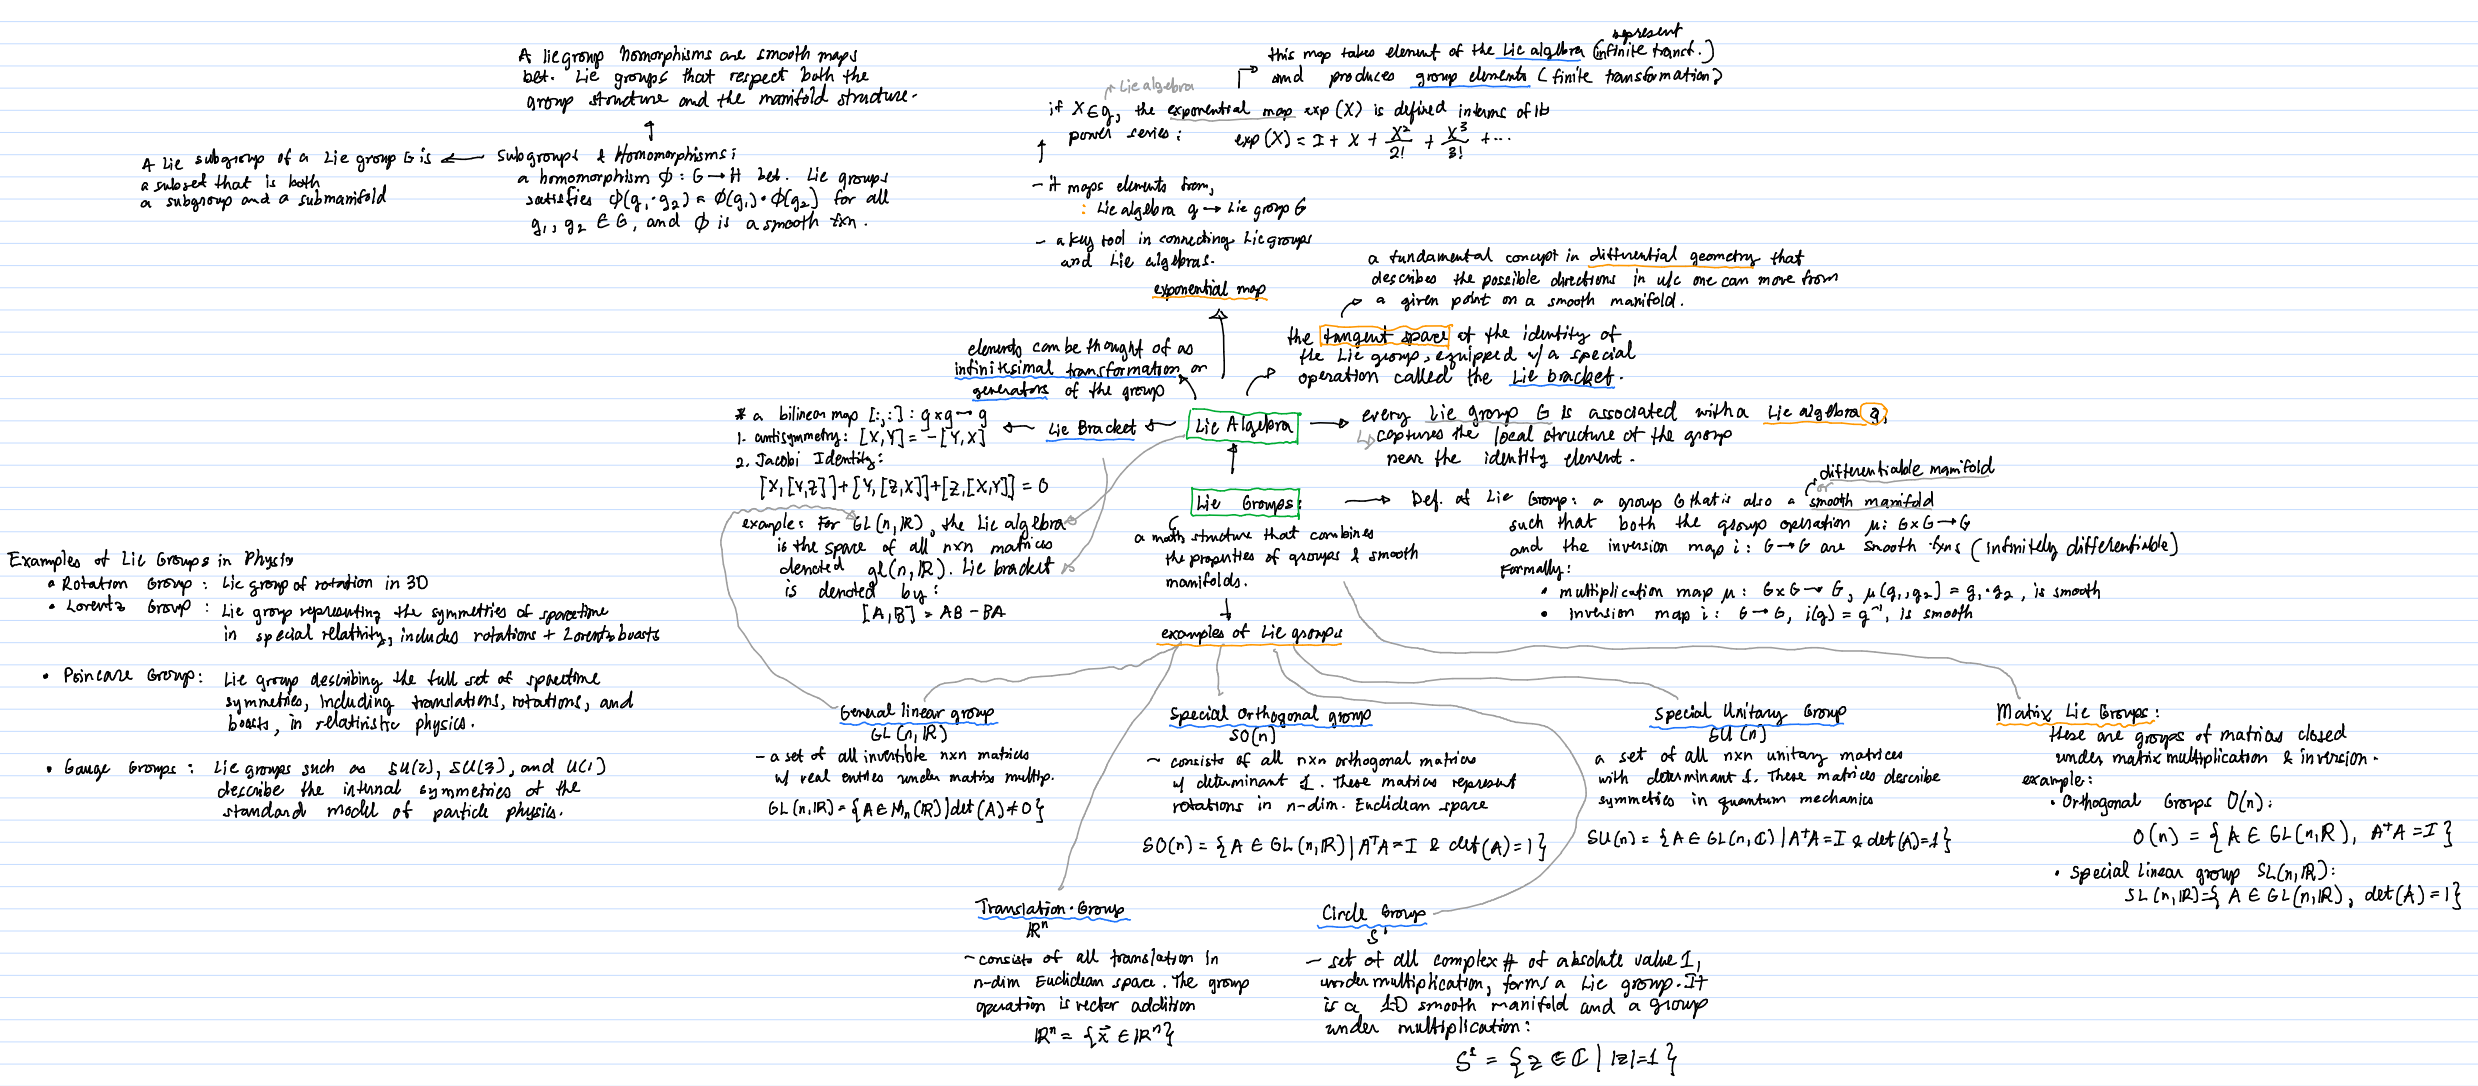 A lie group homomorphisms are smooth maps
bet. Lie groups that respect both the
group structure and the manifold structure.
A Lie subgroup of a Lie group G is
a subset that is both
a subgroup and a submanifold
Subgroups & Homomorphisms:
a homomorphism ϕ: G → H bet. Lie groups
satisfies ϕ(g₁·g₂) = ϕ(g₁)·ϕ(g₂) for all
g₁, g₂ ∈ G, and ϕ is a smooth fxn.
represent
this map takes element of the Lie algebra (infinite transf.)
and produces group elements (finite transformation)
Lie algebra
if X ∈ g, the exponential map exp(X) is defined interms of its
power series: exp(X) = I + X + X²/2! + X³/3! + ...
- it maps elements from,
: Lie algebra g → Lie group G
- a key tool in connecting Lie groups
and Lie algebras.
exponential map
a fundamental concept in differential geometry that
describes the possible directions in w/c one can move from
a given point on a smooth manifold.
the tangent space at the identity of
the Lie group, equipped w/ a special
operation called the Lie bracket.
elements can be thought of as
infinitesimal transformation or
generators of the group
* a bilinear map [:,:] : g×g → g
1. antisymmetry: [X,Y] = -[Y,X]
2. Jacobi Identity:
[X,[Y,Z]]+[Y,[Z,X]]+[Z,[X,Y]] = 0
Lie Bracket
Lie Algebra
every Lie group G is associated with a Lie algebra g,
captures the local structure of the group
near the identity element.
example: For GL(n,ℝ), the Lie algebra
is the space of all n×n matrices
denoted gl(n,ℝ). Lie bracket
is denoted by:
[A,B] = AB - BA
Lie Groups:
a math structure that combines
the properties of groups & smooth
manifolds.
differentiable manifold
or
Def. of Lie Group: a group G that is also a smooth manifold
such that both the group operation μ: G×G → G
and the inversion map i: G → G are smooth fxns (infinitely differentiable)
Formally:
• multiplication map μ: G×G → G, μ(g₁,g₂) = g₁·g₂, is smooth
• inversion map i: G → G, i(g) = g⁻¹, is smooth
Examples of Lie Groups in Physix
• Rotation Group: Lie group of rotation in 3D
• Lorentz Group: Lie group representing the symmetries of spacetime
in special relativity, includes rotations + Lorentz boosts
• Poincare Group: Lie group describing the full set of spacetime
symmetries, including translations, rotations, and
boosts, in relativistic physics.
• Gauge Groups: Lie groups such as SU(2), SU(3), and U(1)
describe the internal symmetries of the
standard model of particle physics.
examples of Lie groups
General linear group
GL(n,ℝ)
- a set of all invertible n×n matrices
w/ real entries under matrix multip.
GL(n,ℝ) = {A ∈ Mₙ(ℝ)|det(A) ≠ 0}
Special Orthogonal group
SO(n)
- consists of all n×n orthogonal matrices
w/ determinant 1. These matrices represent
rotations in n-dim. Euclidean space
SO(n) = {A ∈ GL(n,ℝ) | AᵀA = I & det(A) = 1}
Special Unitary Group
SU(n)
a set of all n×n unitary matrices
with determinant 1. These matrices describe
symmetries in quantum mechanics
SU(n) = {A ∈ GL(n,ℂ) | A†A = I & det(A) = 1}
Matrix Lie Groups:
these are groups of matrices closed
under matrix multiplication & inversion.
example:
• Orthogonal Groups O(n):
O(n) = {A ∈ GL(n,ℝ), AᵀA = I}
• Special Linear group SL(n,ℝ):
SL(n,ℝ) = {A ∈ GL(n,ℝ), det(A) = 1}
Translation Group
ℝⁿ
- consists of all translation in
n-dim Euclidean space. The group
operation is vector addition
ℝⁿ = {x⃗ ∈ ℝⁿ}
Circle Group
S¹
- set of all complex # of absolute value 1,
under multiplication, forms a Lie group. It
is a 1-D smooth manifold and a group
under multiplication:
S¹ = {z ∈ ℂ | |z|=1}